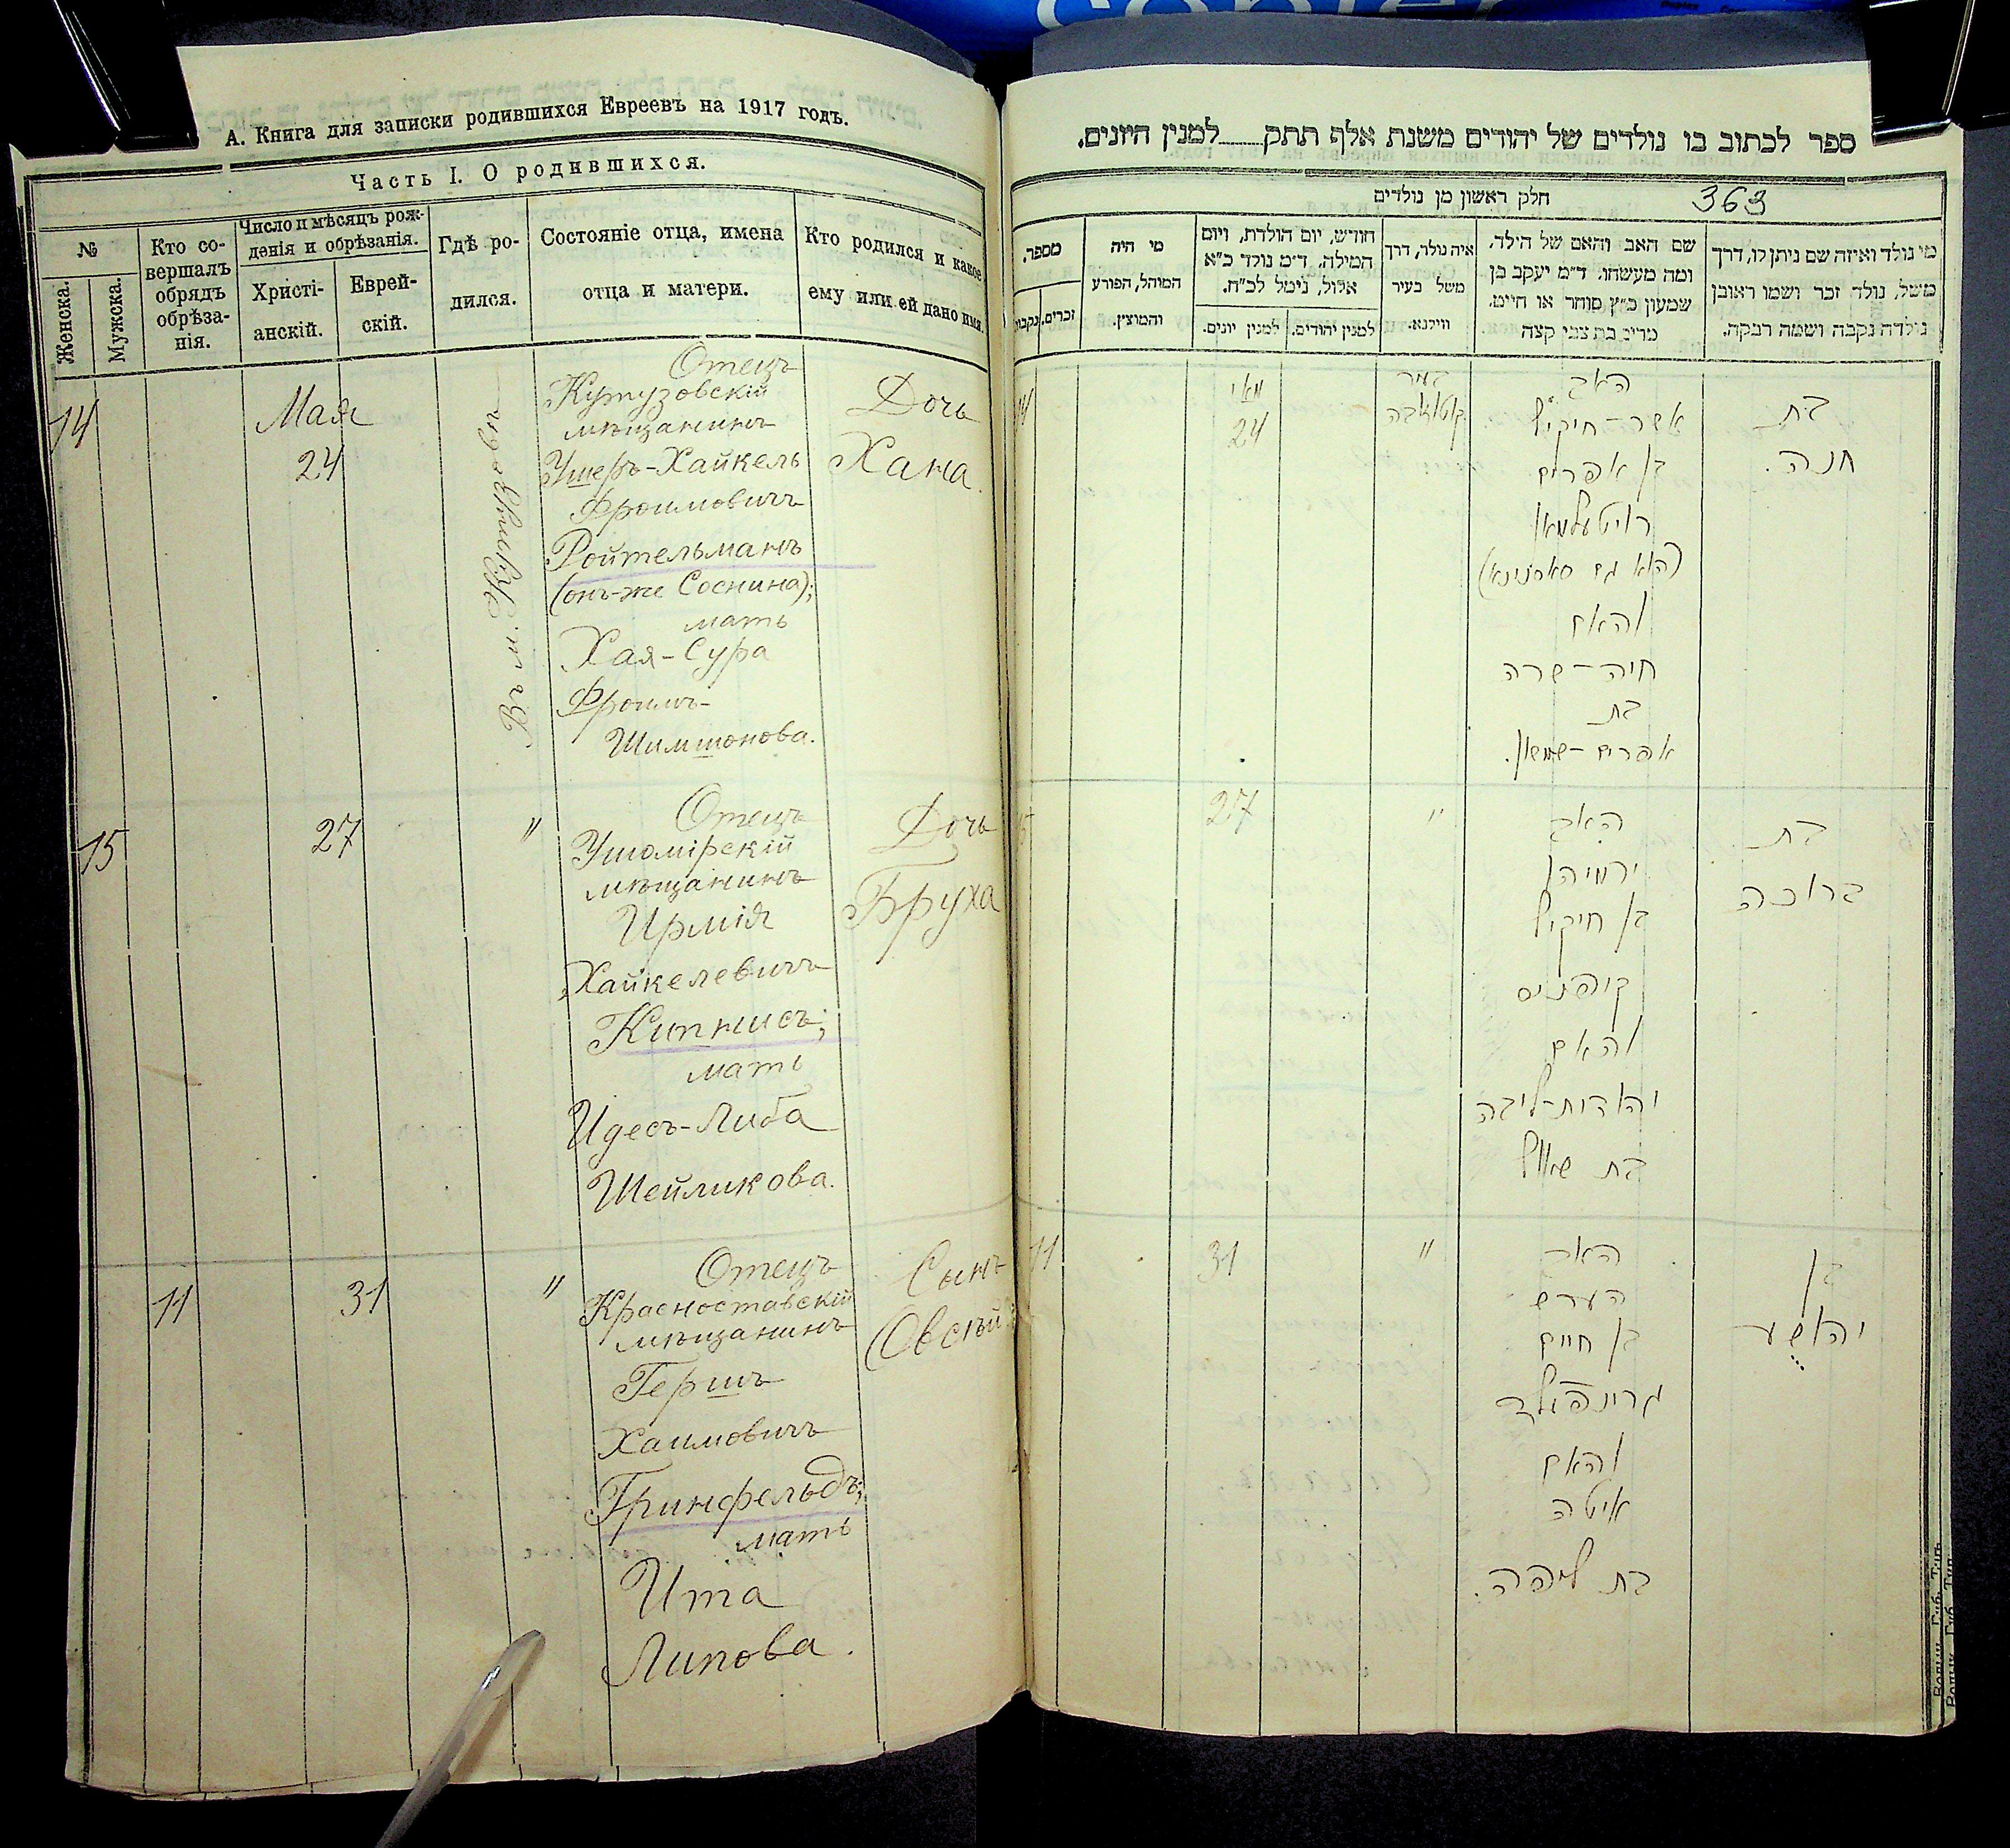 А. Книга для записки родившихся Евреевъ на 1917 годъ.
Часть I. О родившихся.
№
Женска.
Мужска.
Кто со-
вершалъ
обрядъ
обрѣза-
нія.
Число и мѣсяцъ рож-
денія и обрѣзанія.
Христі-
анскій.
Еврей-
скій.
Гдѣ ро-
дился.
Состояніе отца, имена
отца и матери.
Кто родился и какое
ему или ей дано имя.
14
Мая
24
Отецъ
Кутузовскій
мѣщанинъ
Ушеръ-Хайкель
Фроимовичъ
Ройтельманъ
(онъ-же Соснина);
мать
Хая-Сура
Фроимъ-
Шимшонова.
Дочь
Хана.
15
27
"
Отецъ
Ушомірскій
мѣщанинъ
Ирмія
Хайкелевичъ
Кипнисъ;
мать
Идесъ-Либа
Шейликова.
Дочь
Бруха
11
31
"
Отецъ
Красноставскій
мѣщанинъ
Гершъ
Хаимовичъ
Гринфельдъ;
мать
Ита
Липова.
Сынъ
Овсѣй
ספר לכתוב בו נולדים של יהודים משנת אלף תתק למנין היונים.
חלק ראשון מן נולדים
363
מספר.
זכרים.
נקבות
מי היה
המוהל, הפורע
והמוצץ.
חודש, יום הולדת, ויום
המילה. ד״מ נולד כ״א
אלול, נימל לכ״ח.
למנין יונים.
למנין יהודים.
איה נולד, דרך
משל בעיר
ווילנא.
שם האב והאם של הילד,
ומה מעשהו. ד״מ יעקב בן
שמעון כ״ץ סוחר או חייט.
מרים בת צבי קצה
מי נולד ואיזה שם ניתן לו, דרך
משל, נולד זכר ושמו ראובן
נולדה נקבה ושמה רבקה.
14
מאי
24
בעיר
האב
אשר-חיקיל
בן אפרים
רויטעלמאן
(הוא גם סאסנינא)
והאם
חיה-שרה
בת
אפרים-שמשון.
בת
חנה.
15
27
"
האב
ירמיהו
בן חיקיל
קיפניס
והאם
יהודית-ליבה
בת
בת
ברוכה
11
31
"
האב
הערש
בן חיים
גרינפעלד
והאם
איטה
בת ליפה.
בן
יהושע